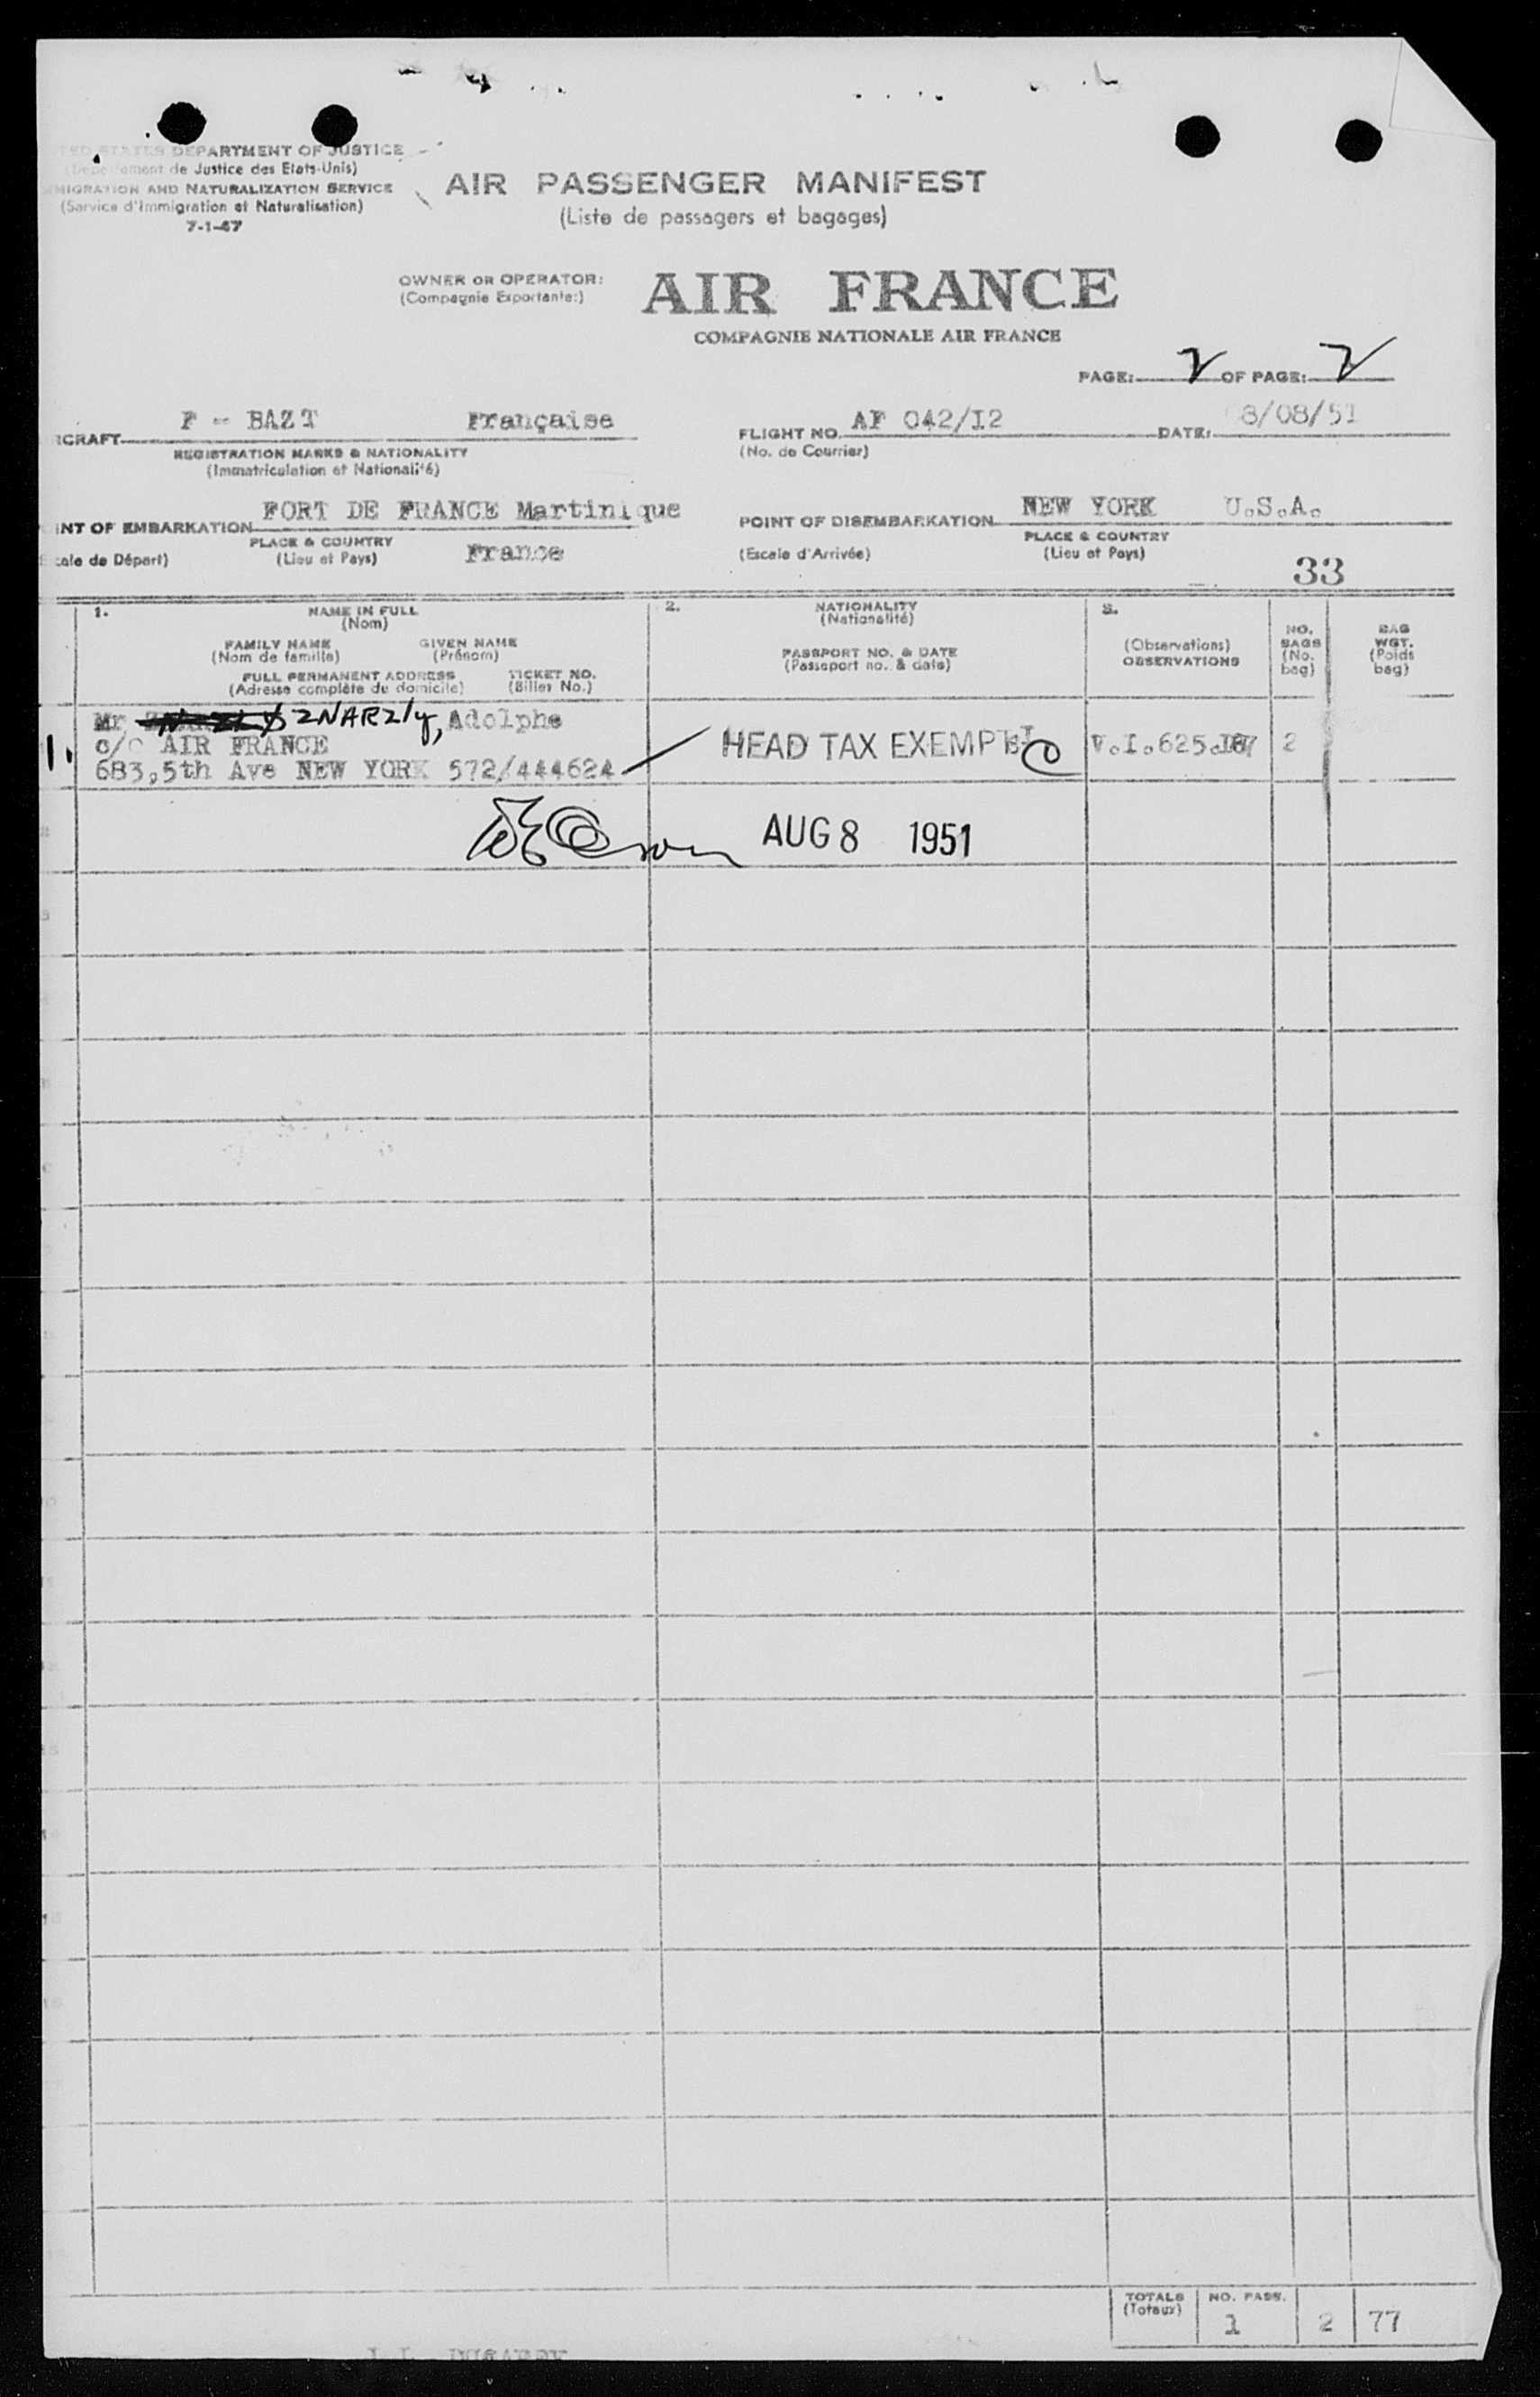 DEPARTMENT OF JUSTICE
de Justice des Etats-Unis)
AND NATURALIZATION SERVICE
(Service d'Immigration et Naturalisation)
7-1-47
AIR PASSENGER MANIFEST
(Liste de passagers et bagages)
OWNER OR OPERATOR:
(Compagnie Exportante:)
AIR FRANCE
COMPAGNIE NATIONALE AIR FRANCE
PAGE: 2 OF PAGE: 2
RCRAFT F - BAZT Française
REGISTRATION MARKS & NATIONALITY
(Immatriculation et Nationalité)
FLIGHT NO. AF 042/I2 DATE: 8/08/51
(No. de Courrier)
INT OF EMBARKATION FORT DE FRANCE Martinique
PLACE & COUNTRY
cale de Départ) (Lieu et Pays) France
POINT OF DISEMBARKATION NEW YORK U.S.A.
PLACE & COUNTRY
(Escale d'Arrivée) (Lieu et Pays)
33
1. NAME IN FULL
(Nom)
FAMILY NAME GIVEN NAME
(Nom de famille) (Prénom)
FULL PERMANENT ADDRESS TICKET NO.
(Adresse complète du domicile) (Billet No.)
2. NATIONALITY
(Nationalité)
PASSPORT NO. & DATE
(Passeport no. & date)
3.
(Observations)
OBSERVATIONS
NO.
BAGS
(No.
bag)
BAG
WGT.
(Poids
bag)
1. Mr ZNARZly, Adolphe
c/o AIR FRANCE
683,5th Ave NEW YORK 572/444624
HEAD TAX EXEMPT
V.I.625. 2
AUG 8 1951
TOTALS NO. PASS.
(Totaux) 1 2 77